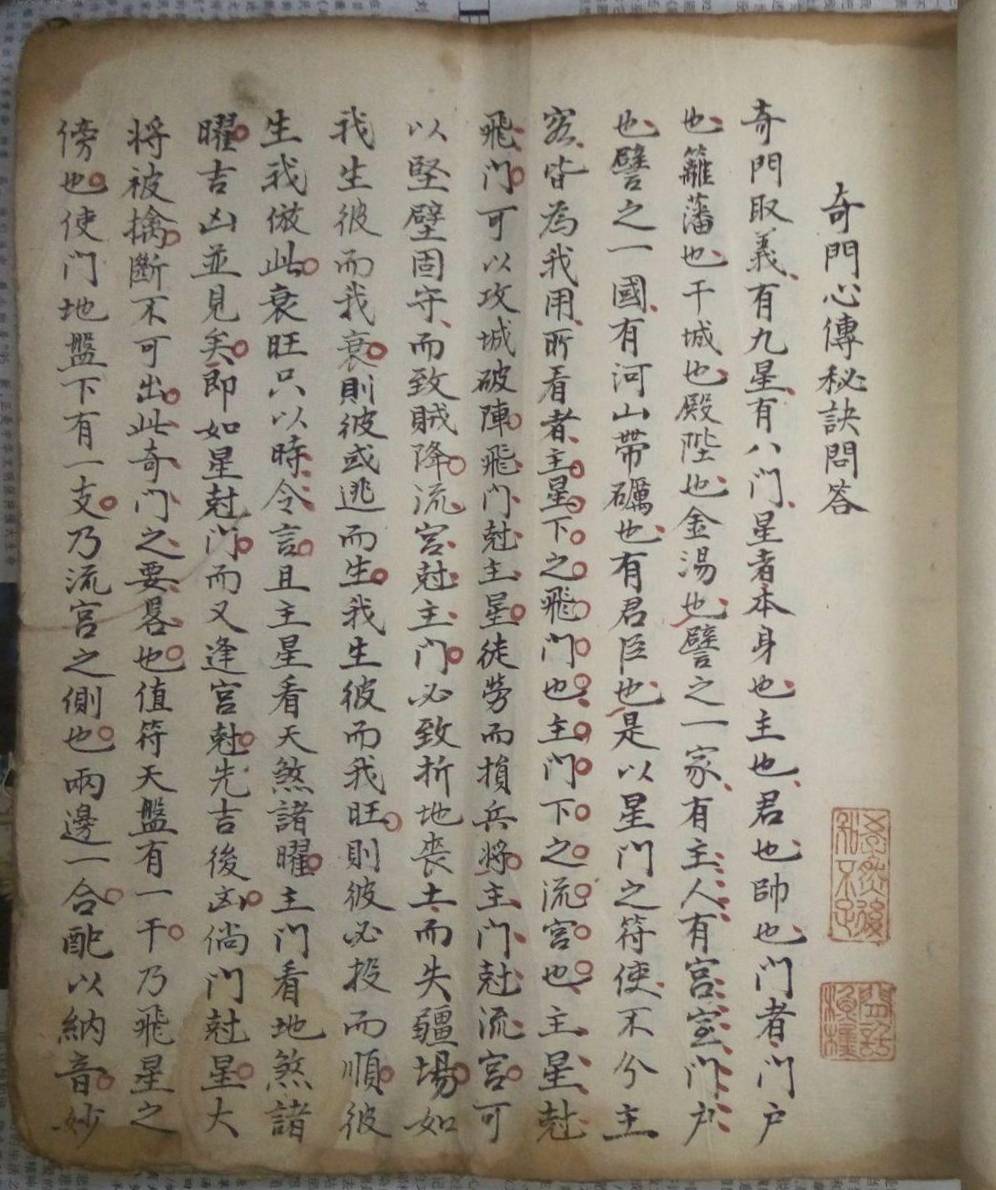 奇門心傳秘訣問答
奇門取義有九星有八門星者本身也主也君也帥也門者門户
也籬藩也干城也殿陛也金湯也譬之一家有主人有宫室門户
也譬之一國有河山帶礪也有君臣也是以星門之符使不分主
客皆為我用所看者主星下之飛門也主門下之流宫也主星尅
飛門可以攻城破陣飛門尅主星徒勞而損兵將主門尅流宫可
以堅壁固守而致賊降流宫尅主門必致折地喪土而失疆場如
我生彼而我衰則彼或逃而生我生彼而我旺則彼必投而順彼
生我倣此衰旺只以時令言且主星看天煞諸曜主門看地煞諸
曜吉凶並見矣即如星尅門而又逢宫尅先吉後凶倘門尅星大
將被擒斷不可出此奇門之要畧也值符天盤有一干乃飛星之
傍也使門地盤下有一支乃流宫之側也兩邊一合配以納音妙